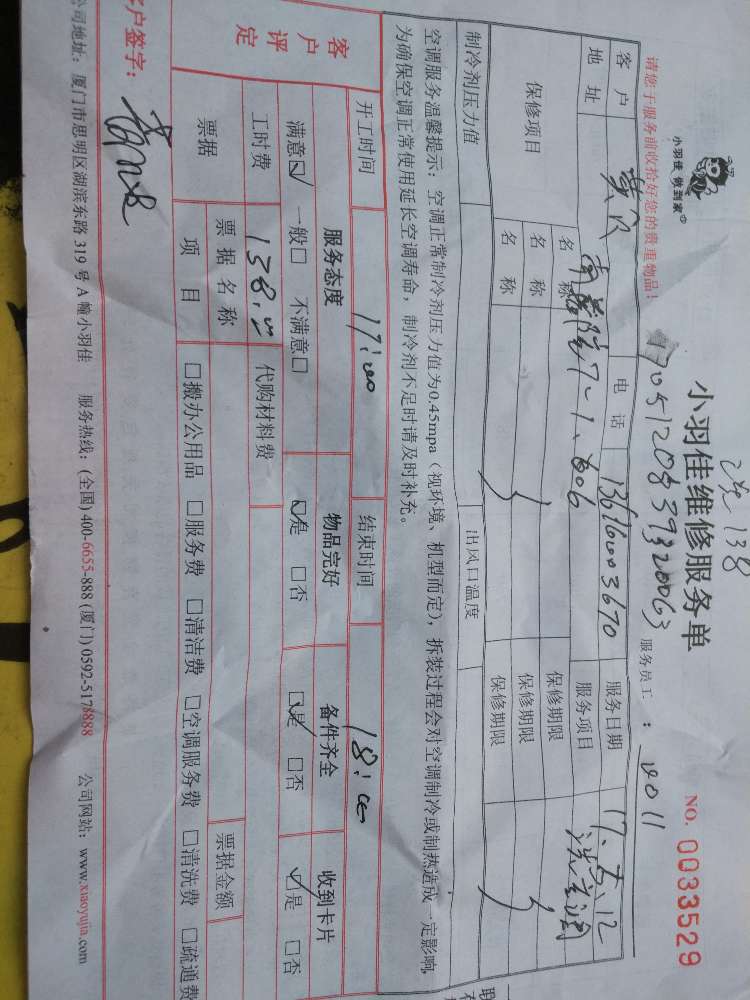 洗 138
小羽佳 做到家
小羽佳维修服务单
NO. 0033529
请您于服务前收拾好您的贵重物品!
服务员工:
客户
电话
13616003670
服务日期
17.5.12
地址
7-1.606
服务项目
保修项目
名称
保修期限
名称
保修期限
名称
保修期限
制冷剂压力值
出风口温度
空调服务温馨提示:空调正常制冷剂压力值为0.45mpa(视环境、机型而定),拆装过程会对空调制冷或制热造成一定影响,
为确保空调正常使用延长空调寿命,制冷剂不足时请及时补充。
开工时间
17:00
结束时间
18:00
客户评定
服务态度
物品完好
备件齐全
收到卡片
满意☑ 一般□ 不满意□
☑是 □否
☑是 □否
☑是 □否
工时费
138.
代购材料费
票据
票据名称
票据金额
项目
□搬办公用品 □服务费 □清洁费 □空调服务费 □清洗费 □疏通费
客户签字:
公司地址:厦门市思明区湖滨东路 319 号 A 幢小羽佳 服务热线:(全国) 400-6655-888 (厦门) 0592-5178888 公司网站:www.xiaoyujia.com